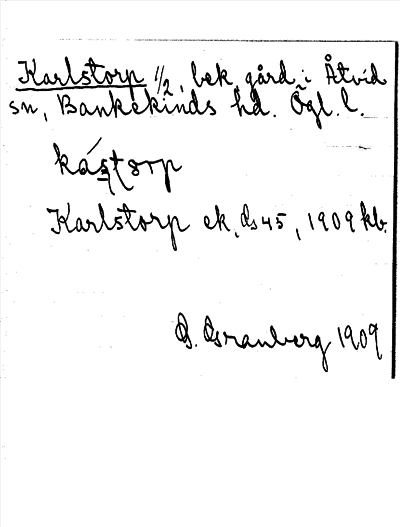 Karlstorp 1/2, bek gård i Åtvid
sn, Bankekinds hd. Ögl. l.
kástorp
Karlstorp ek, GS 45, 1909 kb.
G. Granberg 1909